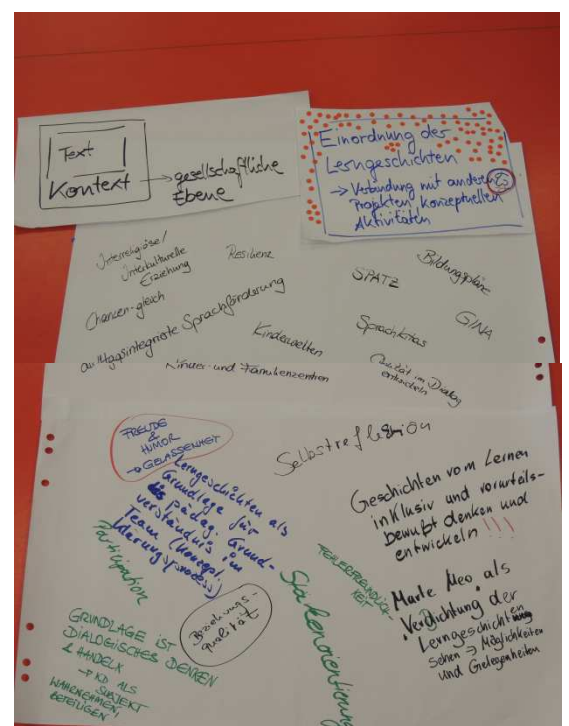 Text
Kontext
→ gesellschaftliche
Ebene
Einordnung der
Lerngeschichten
→ Verbindung mit anderen
Projekten, konzeptuellen
Aktivitäten
Interreligiöse/
Interkulturelle
Erziehung
Resilienz
Bildungspläne
SPATZ
Chancen-gleich
GINA
alltagsintegrierte Sprachförderung
Sprachkitas
Kinderwelten
Qualität im Dialog
entwickeln
Kinder- und Familienzentren
FREUDE
&
HUMOR
→ GELASSENHEIT
Selbstreflexion
Lerngeschichten als
Grundlage für
pädag. Grund-
verständnis im
Team (Konzept,
klärungsprozess)
Geschichten vom Lernen
inklusiv und vorurteils-
bewußt denken und
entwickeln !!!
Partizipation
FEHLERFREUNDLICH-
KEIT
Stärkenorientierung
Beziehungs-
qualität
Marte Meo als
Verdichtung der
Lerngeschichten
Sehen → Möglichkeiten
und Gelegenheiten
GRUNDLAGE IST
DIALOGISCHES DENKEN
& HANDELN
→ KD ALS
SUBJEKT
WAHRNEHMEN,
BETEILIGEN